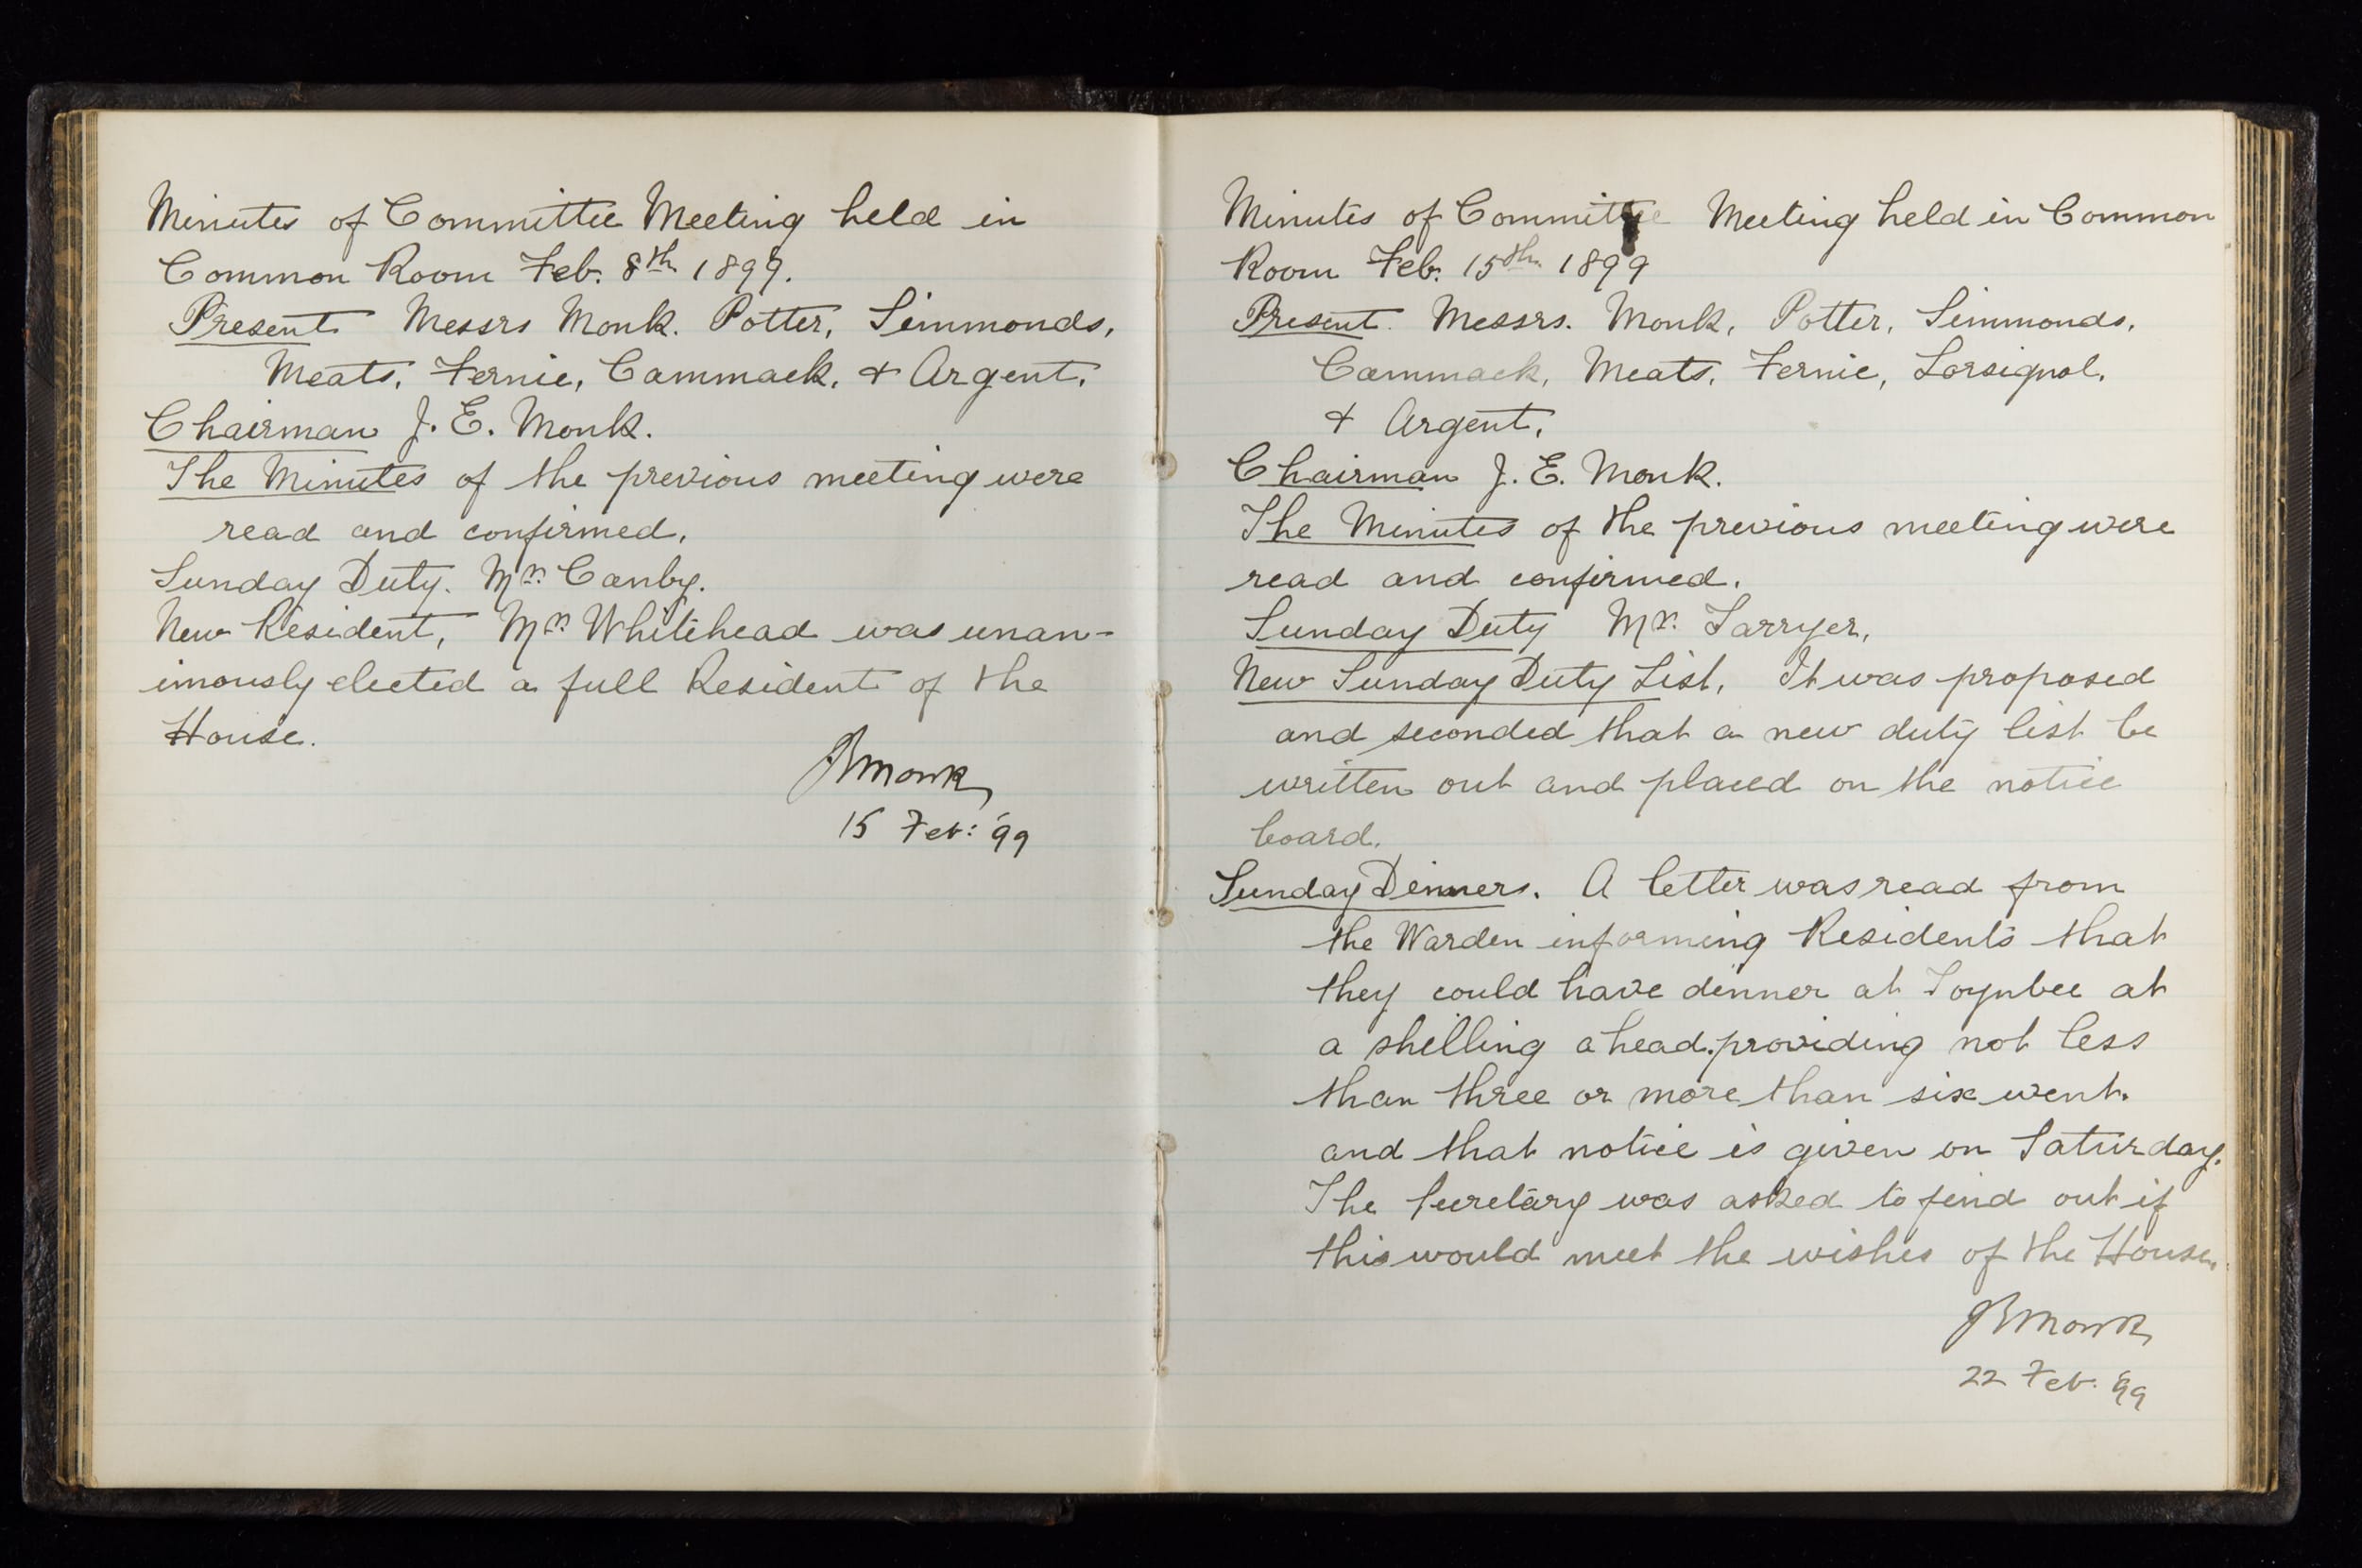 Minutes of Committee Meeting held in
Common Room Feb. 8th 1899.
Present Messrs Monk. Potter, Simmonds,
Meats, Fernie, Cammack, & Argent.
Chairman J. E. Monk.
The Minutes of the previous meeting were
read and confirmed.
Sunday Duty. Mr. Canby.
New Resident, Mr. Whitehead was unan-
imously elected a full Resident of the
House.
JEMonk
15 Feb: '99
Minutes of Committee Meeting held in Common
Room Feb. 15th 1899
Present. Messrs. Monk, Potter, Simmonds,
Cammack, Meats, Fernie, Lorsignol,
& Argent.
Chairman J. E. Monk.
The Minutes of the previous meeting were
read and confirmed.
Sunday Duty Mr.
New Sunday Duty List, It was proposed
and seconded that a new duty list be
written out and placed on the notice
board.
Sunday Dinners. A letter was read from
the Warden informing Residents that
they could have dinner at Toynbee at
a shilling a head. providing not less
than three or more than six went.
and that notice is given on Saturday.
The Secretary was asked to find out if
this would meet the wishes of the House.
JEMonk
22 Feb. '99